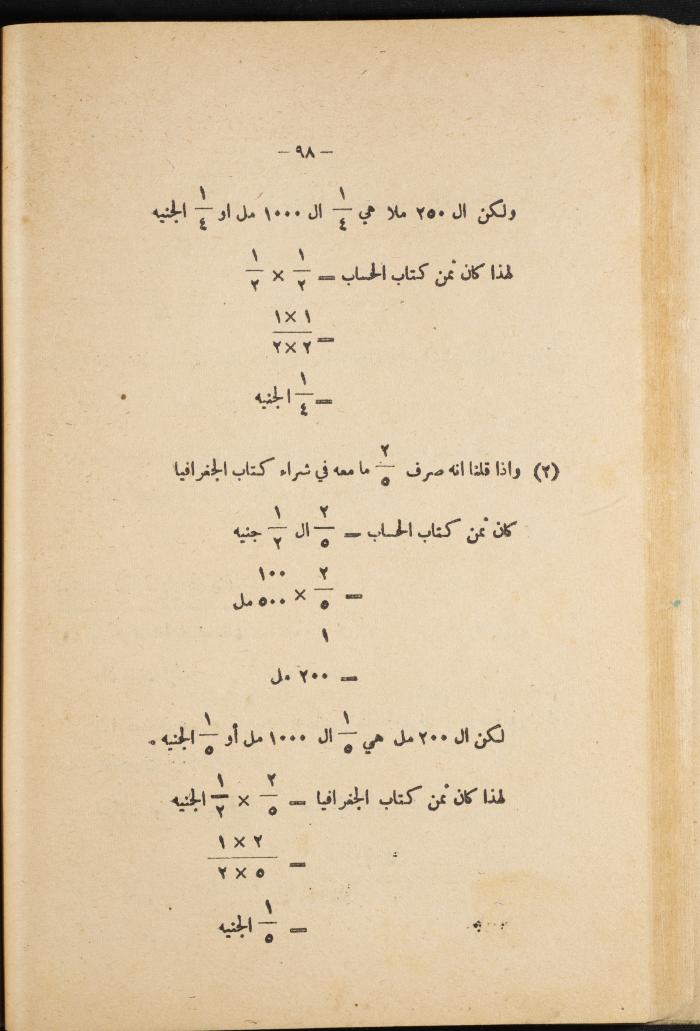 — ٩٨ —
ولكن ال ٢٥٠ ملا هي ١/٤ ال ١٠٠٠ مل او ١/٤ الجنيه
لهذا كان ثمن كتاب الحساب = ١/٢ × ١/٢
= ١×١ / ٢×٢
= ١/٤ الجنيه
(٢) واذا قلنا انه صرف ٢/٥ ما معه في شراء كتاب الجغرافيا
كان ثمن كتاب الحساب = ٢/٥ ال ١/٢ جنيه
١٠٠
= ٢/٥ × ٥٠٠ مل
١
= ٢٠٠ مل
لكن ال ٢٠٠ مل هي ١/٥ ال ١٠٠٠ مل أو ١/٥ الجنيه .
لهذا كان ثمن كتاب الجغرافيا = ٢/٥ × ١/٢ الجنيه
= ٢×١ / ٥×٢
= ١/٥ الجنيه